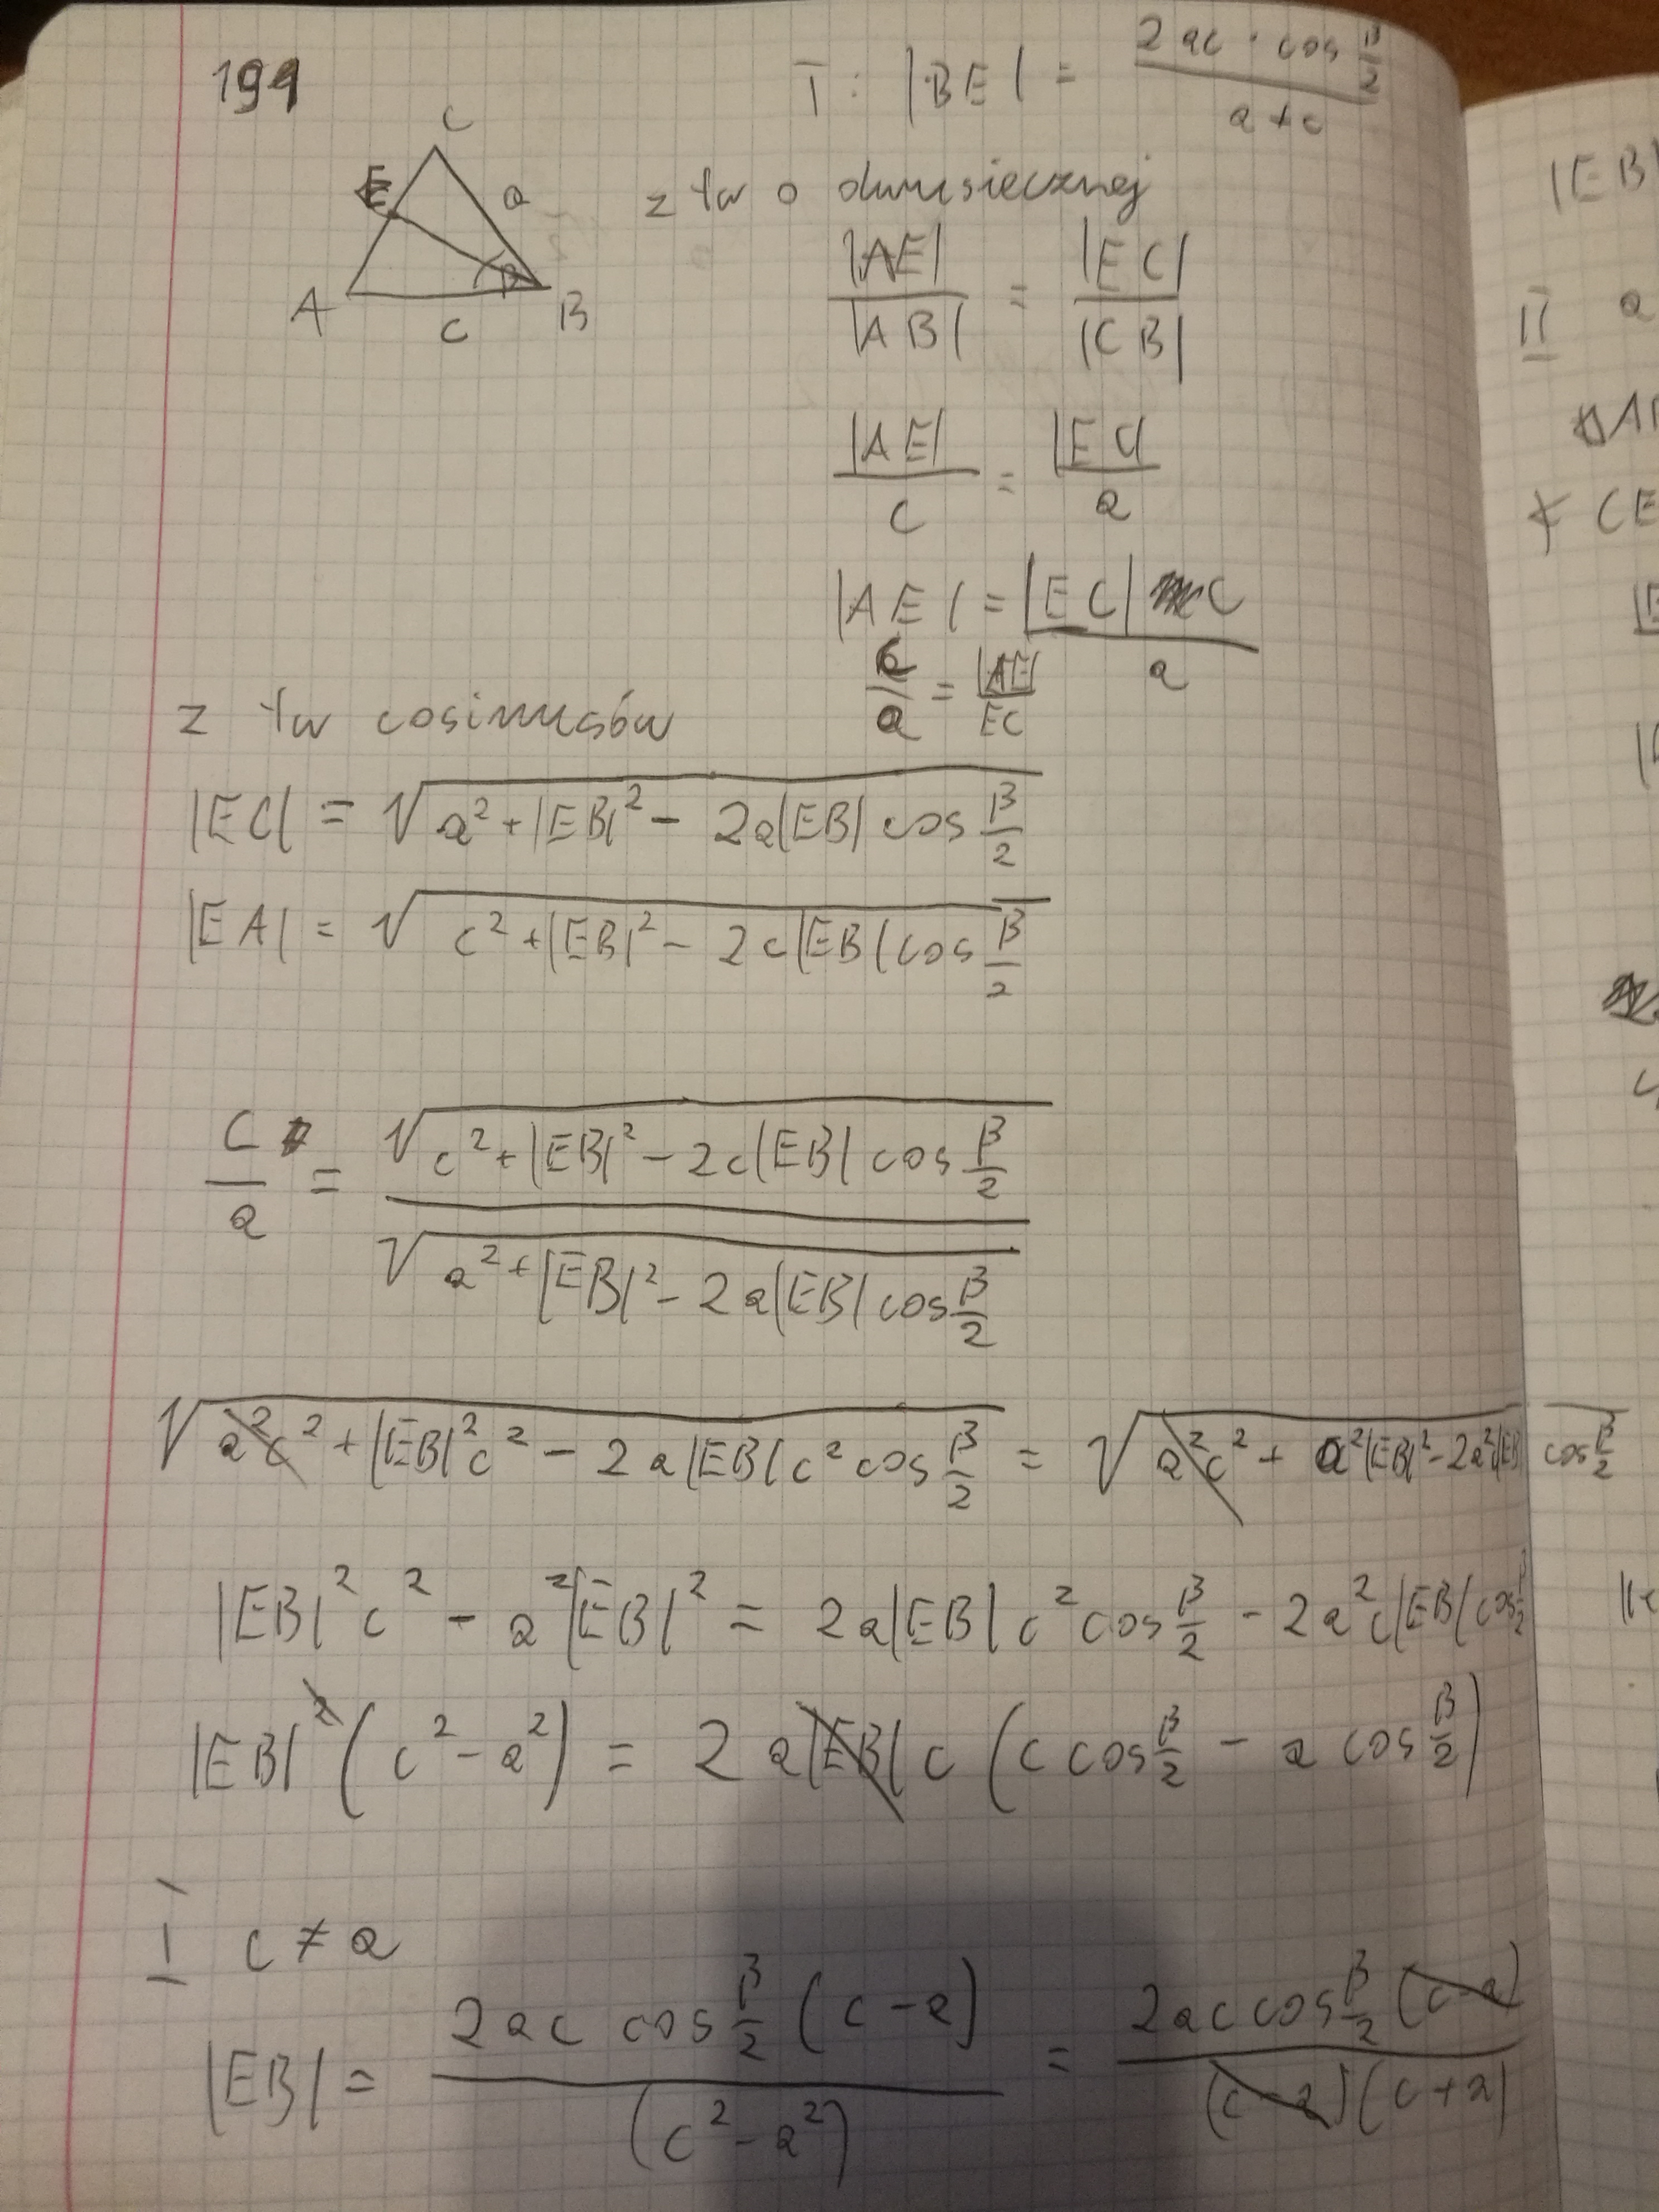 191
T: |BE| = 2ac · cos β/2 / a+c
C
E
a
β
A
c
B
z tw o dwusiecznej
|AE| / |AB| = |EC| / |CB|
|AE| / c = |EC| / a
|AE| = |EC| c / a
c/a = |AE| / EC
z tw cosinusów
|EC| = √(a² + |EB|² - 2a|EB| cos β/2)
|EA| = √(c² + |EB|² - 2c|EB| cos β/2)
c/a = √(c² + |EB|² - 2c|EB| cos β/2) / √(a² + |EB|² - 2a|EB| cos β/2)
√(a²c² + |EB|²c² - 2a|EB|c² cos β/2) = √(a²c² + a²|EB|² - 2a²c|EB| cos β/2)
|EB|²c² - a²|EB|² = 2a|EB|c² cos β/2 - 2a²c|EB| cos β/2
|EB|² (c² - a²) = 2a|EB|c (c cos β/2 - a cos β/2)
I c ≠ a
|EB| = 2ac cos β/2 (c - a) / (c² - a²) = 2ac cos β/2 (c - a) / (c - a)(c + a)
|EB|
II a
CE